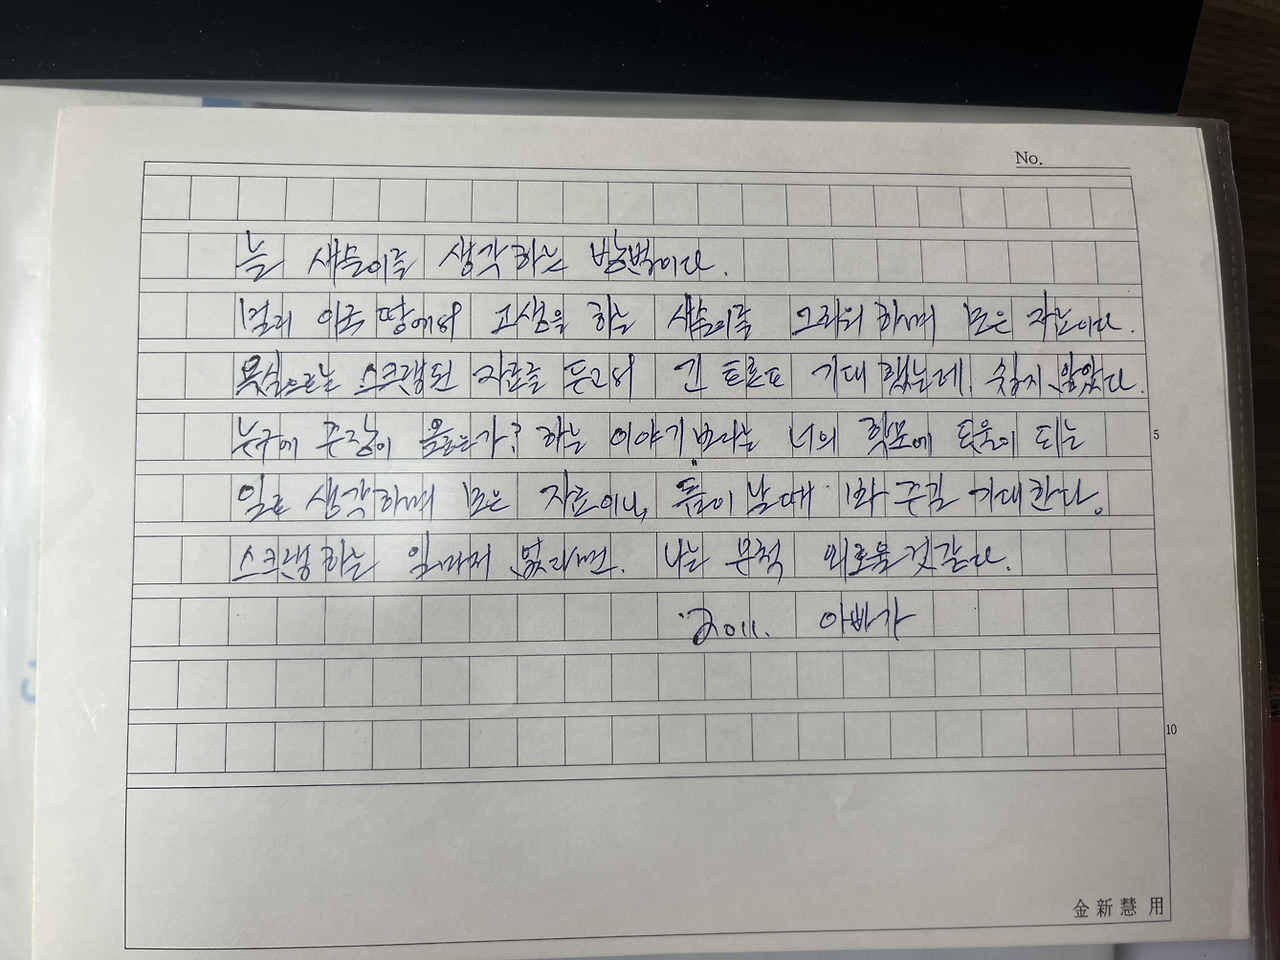 No.
는 새슬이를 생각하는 방법이다.
멀리 이국 땅에서 고생을 하는 새슬이를 그리워 하며 모은 자료이다.
욕심으로는 스크랩된 자료를 듣고서 긴 토론도 기대 했는데, 쉽지 않았다.
누구에 주장이 옳은가? 하는 이야기 보다는 너의 학문에 도움이 되는
일로 생각하며 모은 자료이니, 틈이 날때 봐 주길 기대한다.
스크랩하는 일마저 없다면. 나는 무척 외로울것같다.
2011. 아빠가
5
10
金新慧用